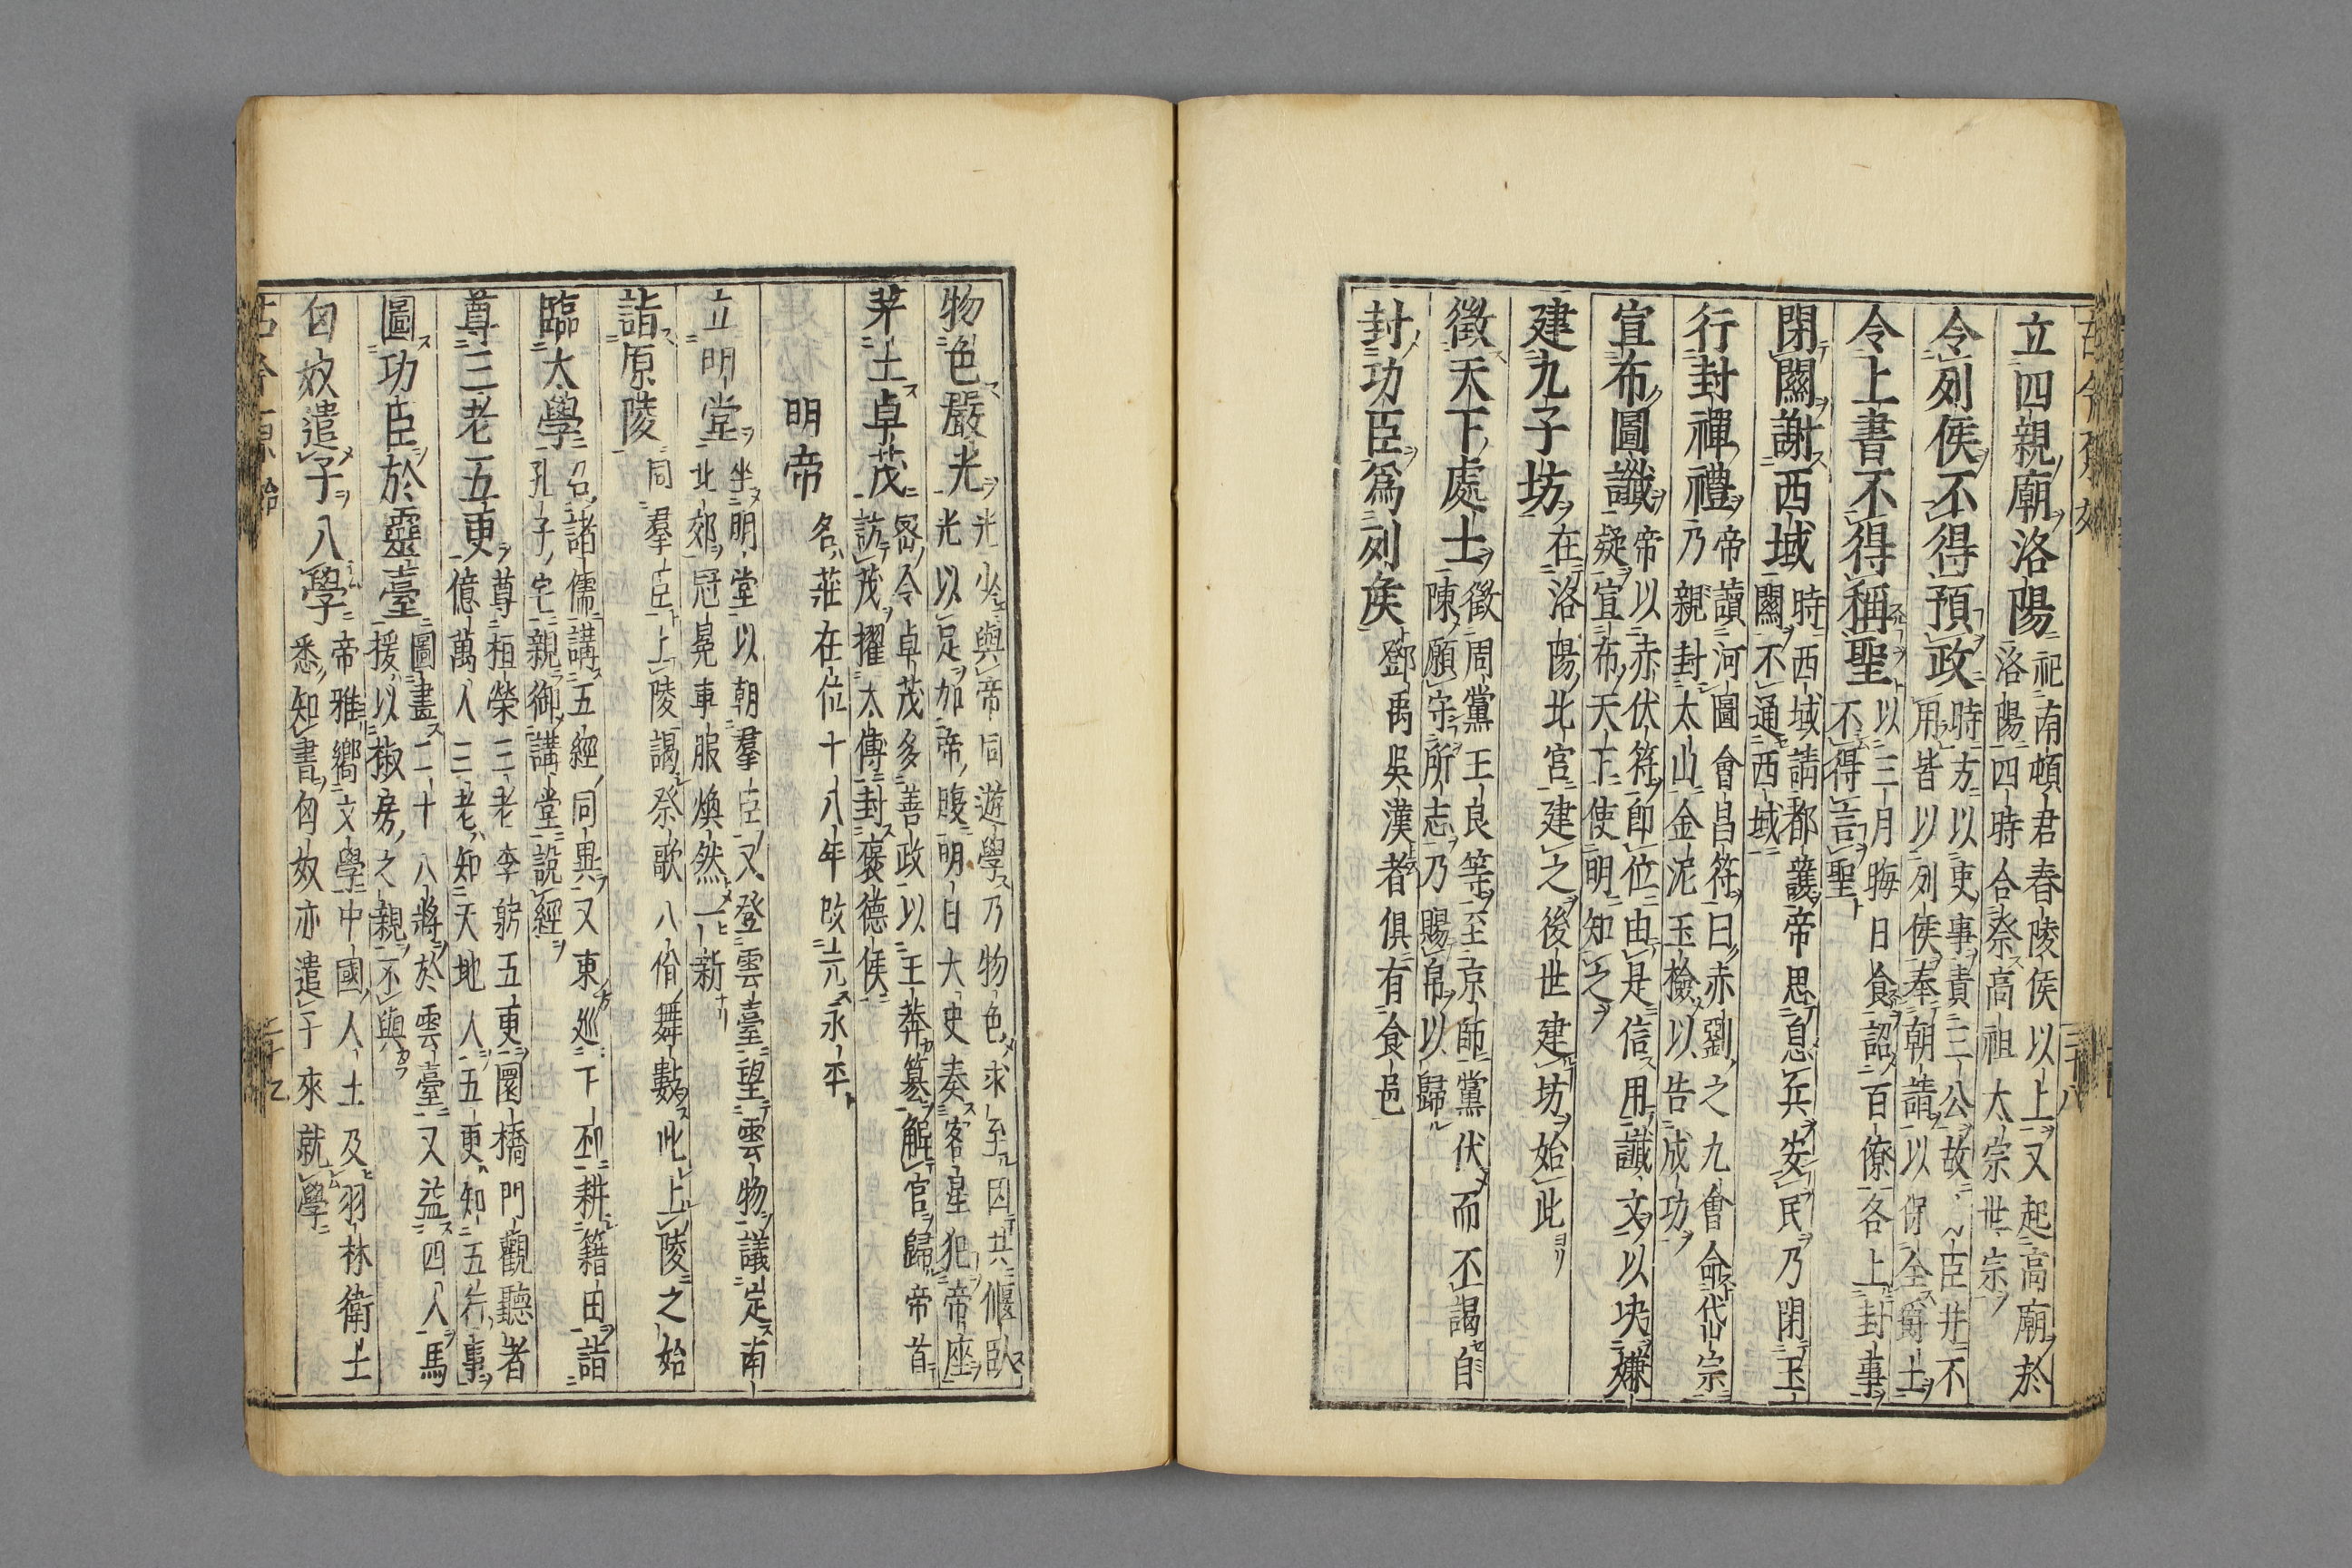 立四親廟洛陽
祀南頓君舂陵侯以上又起高廟於
洛陽四時合祭高祖太宗世宗
令列侯不得預政
時方以吏事責三公故〻臣并不
用皆以列侯奉朝請以保全爵土
令上書不得稱聖
以三月晦日食詔百僚各上封事
不得言聖
閉關謝西域
時西域請都護帝思息兵安民乃閉玉
關不通西域
行封禪禮
帝讀河圖會昌符曰赤劉之九會命岱宗
乃親封太山金泥玉檢以告成功
宣布圖讖
帝以赤伏符即位由是信用讖文以決嫌
疑宣布天下使明知之
建九子坊
在洛陽北宮建之後世建坊始此
徵天下處士
徵周黨王良等至京師黨伏而不謁自
陳願守所志乃賜帛以歸
封功臣爲列侯
鄧禹吳漢者俱有食邑
物色嚴光
光少與帝同遊學乃物色求至因共偃臥
光以足加帝腹明日大史奏客星犯帝座
茅土卓茂
密令卓茂多善政以王莽篡解官歸帝首
訪茂擢太傅封褒德侯
明帝
名莊在位十八年改元永平
立明堂
坐明堂以朝羣臣又登雲臺望雲物議定南
北郊冠冕車服煥然一新
詣原陵
同羣臣上陵謁祭歌八佾舞數此上陵之始
臨太學
召諸儒講五經同異又東巡下邳耕籍田詣
孔子宅親御講堂說經
尊三老五更
尊桓榮三老李躬五更圜橋門觀聽者
億萬人三老知天地人五更知五行事
圖功臣於靈臺
圖畫二十八將於雲臺又益四人馬
援以椒房之親不與
匈奴遣子入學
帝雅嚮文學中國人士及羽林衛士
悉知書匈奴亦遣子來就學